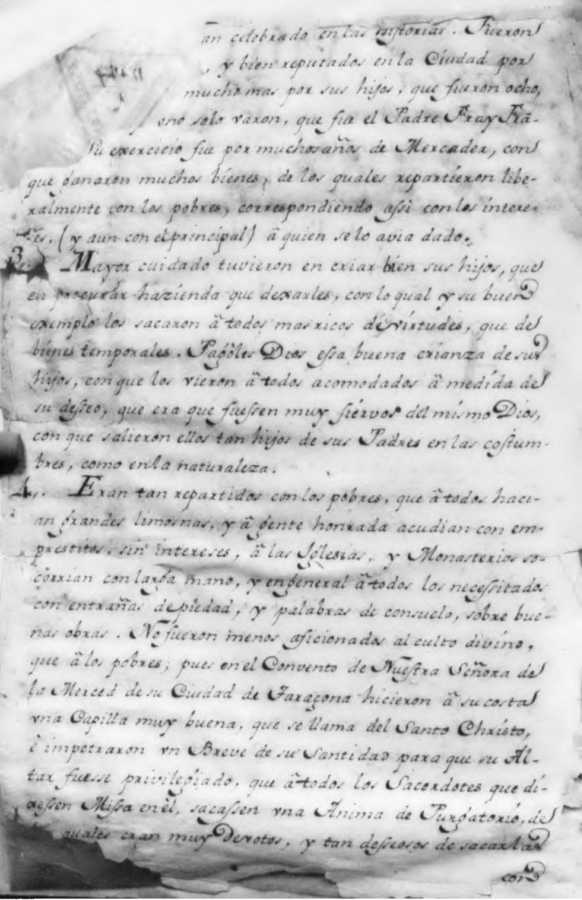 an celebrado en las Historias. Fueron
, y bien reputados en la Ciudad por
mucho mas por sus hijos, que fueron ocho,
ono solo varon, que fue el Padre Fray Frã-
Su exercicio fue por muchos años de Mercader, con
que ganaron muchos bienes, de los quales repartieron libe-
ralmente con los pobres, correspondiendo assi con los intere-
ses, (y aun con el principal) â quien se lo avia dado.
3. Mayor cuidado tuvieron en criar bien sus hijos, que
en procurar hazienda que dexarles, con lo qual y su buen
exemplo los sacaron â todos mas ricos de virtudes, que de
bienes temporales. Pagòles Dios essa buena crianza de sus
hijos, con que los vieron â todos acomodados â medida de
su desseo, que era que fuessen muy siervos del mismo Dios,
con que salieron ellos tan hijos de sus Padres en las costum-
bres, como en la naturaleza.
4. Eran tan repartidos con los pobres, que â todos haci-
an grandes limosnas, y â gente honrada acudian con em-
prestitos, sin intereses, â las Iglesias, y Monasterios so-
corrian con larga mano, y en general â todos los necessitados
con entrañas de piedad, y palabras de consuelo, sobre bue-
nas obras. No fueron menos aficionados al culto divino,
que â los pobres; pues en el Convento de Nuestra Señora de
la Merced de su Ciudad de Taraçona hicieron â su costa
vna Capilla muy buena, que se llama del Santo Christo,
è impetraron vn Breve de su Santidad para que su Al-
tar fuesse privilegiado, que â todos los Sacerdotes que di-
xessen Missa en èl, sacassen vna Anima de Purgatorio, de
quales eran muy devotos, y tan desseosos de sacarlas
con